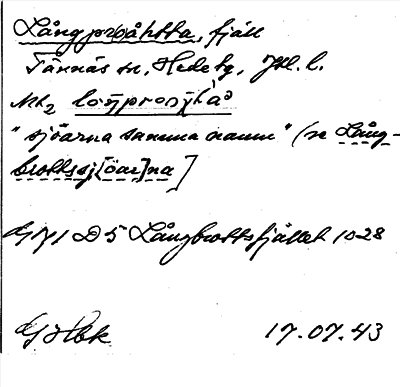 Långpråhtta, fjäll
Tännäs sn, Hede tg, Jtl. l.
"sjöarna samma namn" (se Lång-
brottssj[öar]na]
G1/1 D5 Långbrottsfjället 1028
17.07.43